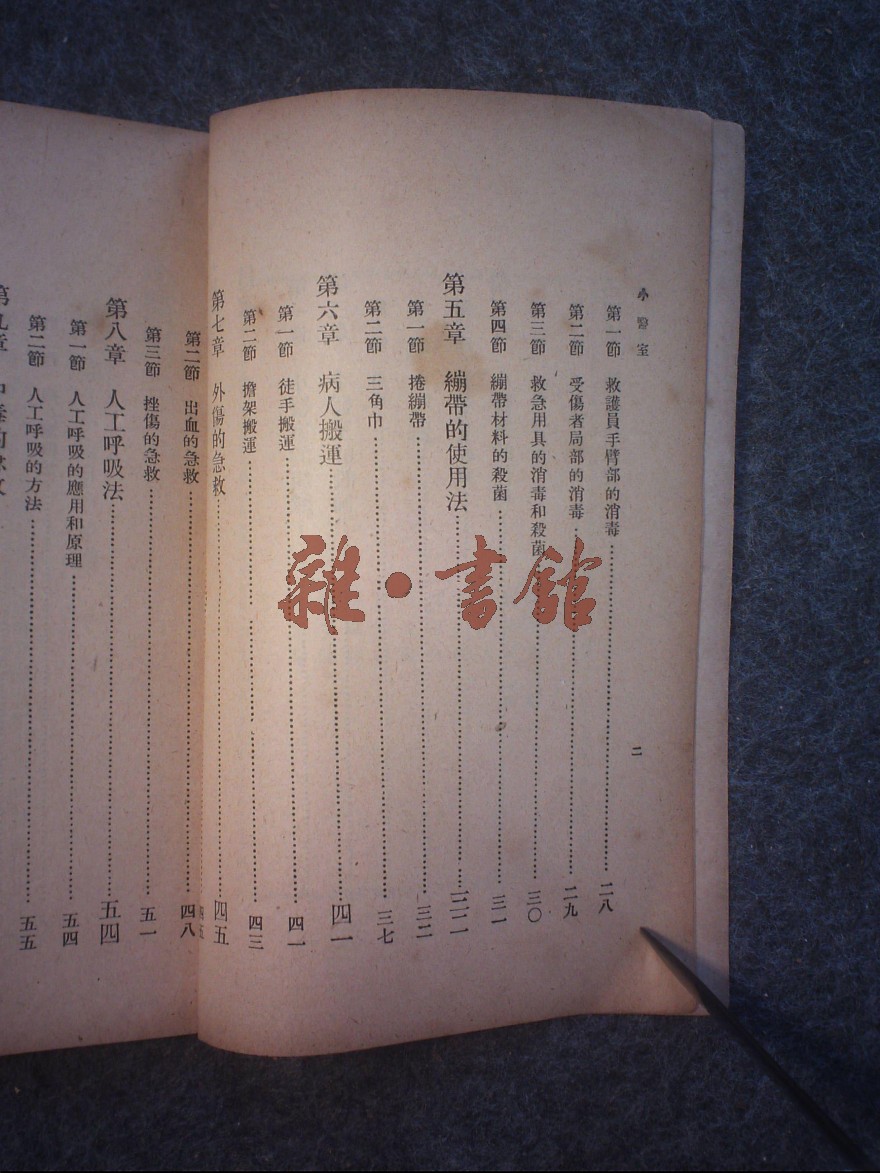 小醫室
二
第一節 救護員手臂部的消毒…………二八
第二節 受傷者局部的消毒…………二九
第三節 救急用具的消毒和殺菌…………三〇
第四節 繃帶材料的殺菌…………三一
第五章 繃帶的使用法…………三二
第一節 捲繃帶…………三二
第二節 三角巾…………三七
第六章 病人搬運…………四一
第一節 徒手搬運…………四一
第二節 擔架搬運…………四三
第七章 外傷的急救…………四五
四五
第二節 出血的急救…………四八
第三節 挫傷的急救…………五一
第八章 人工呼吸法…………五四
第一節 人工呼吸的應用和原理…………五四
第二節 人工呼吸的方法…………五五
第九章
雜·書館